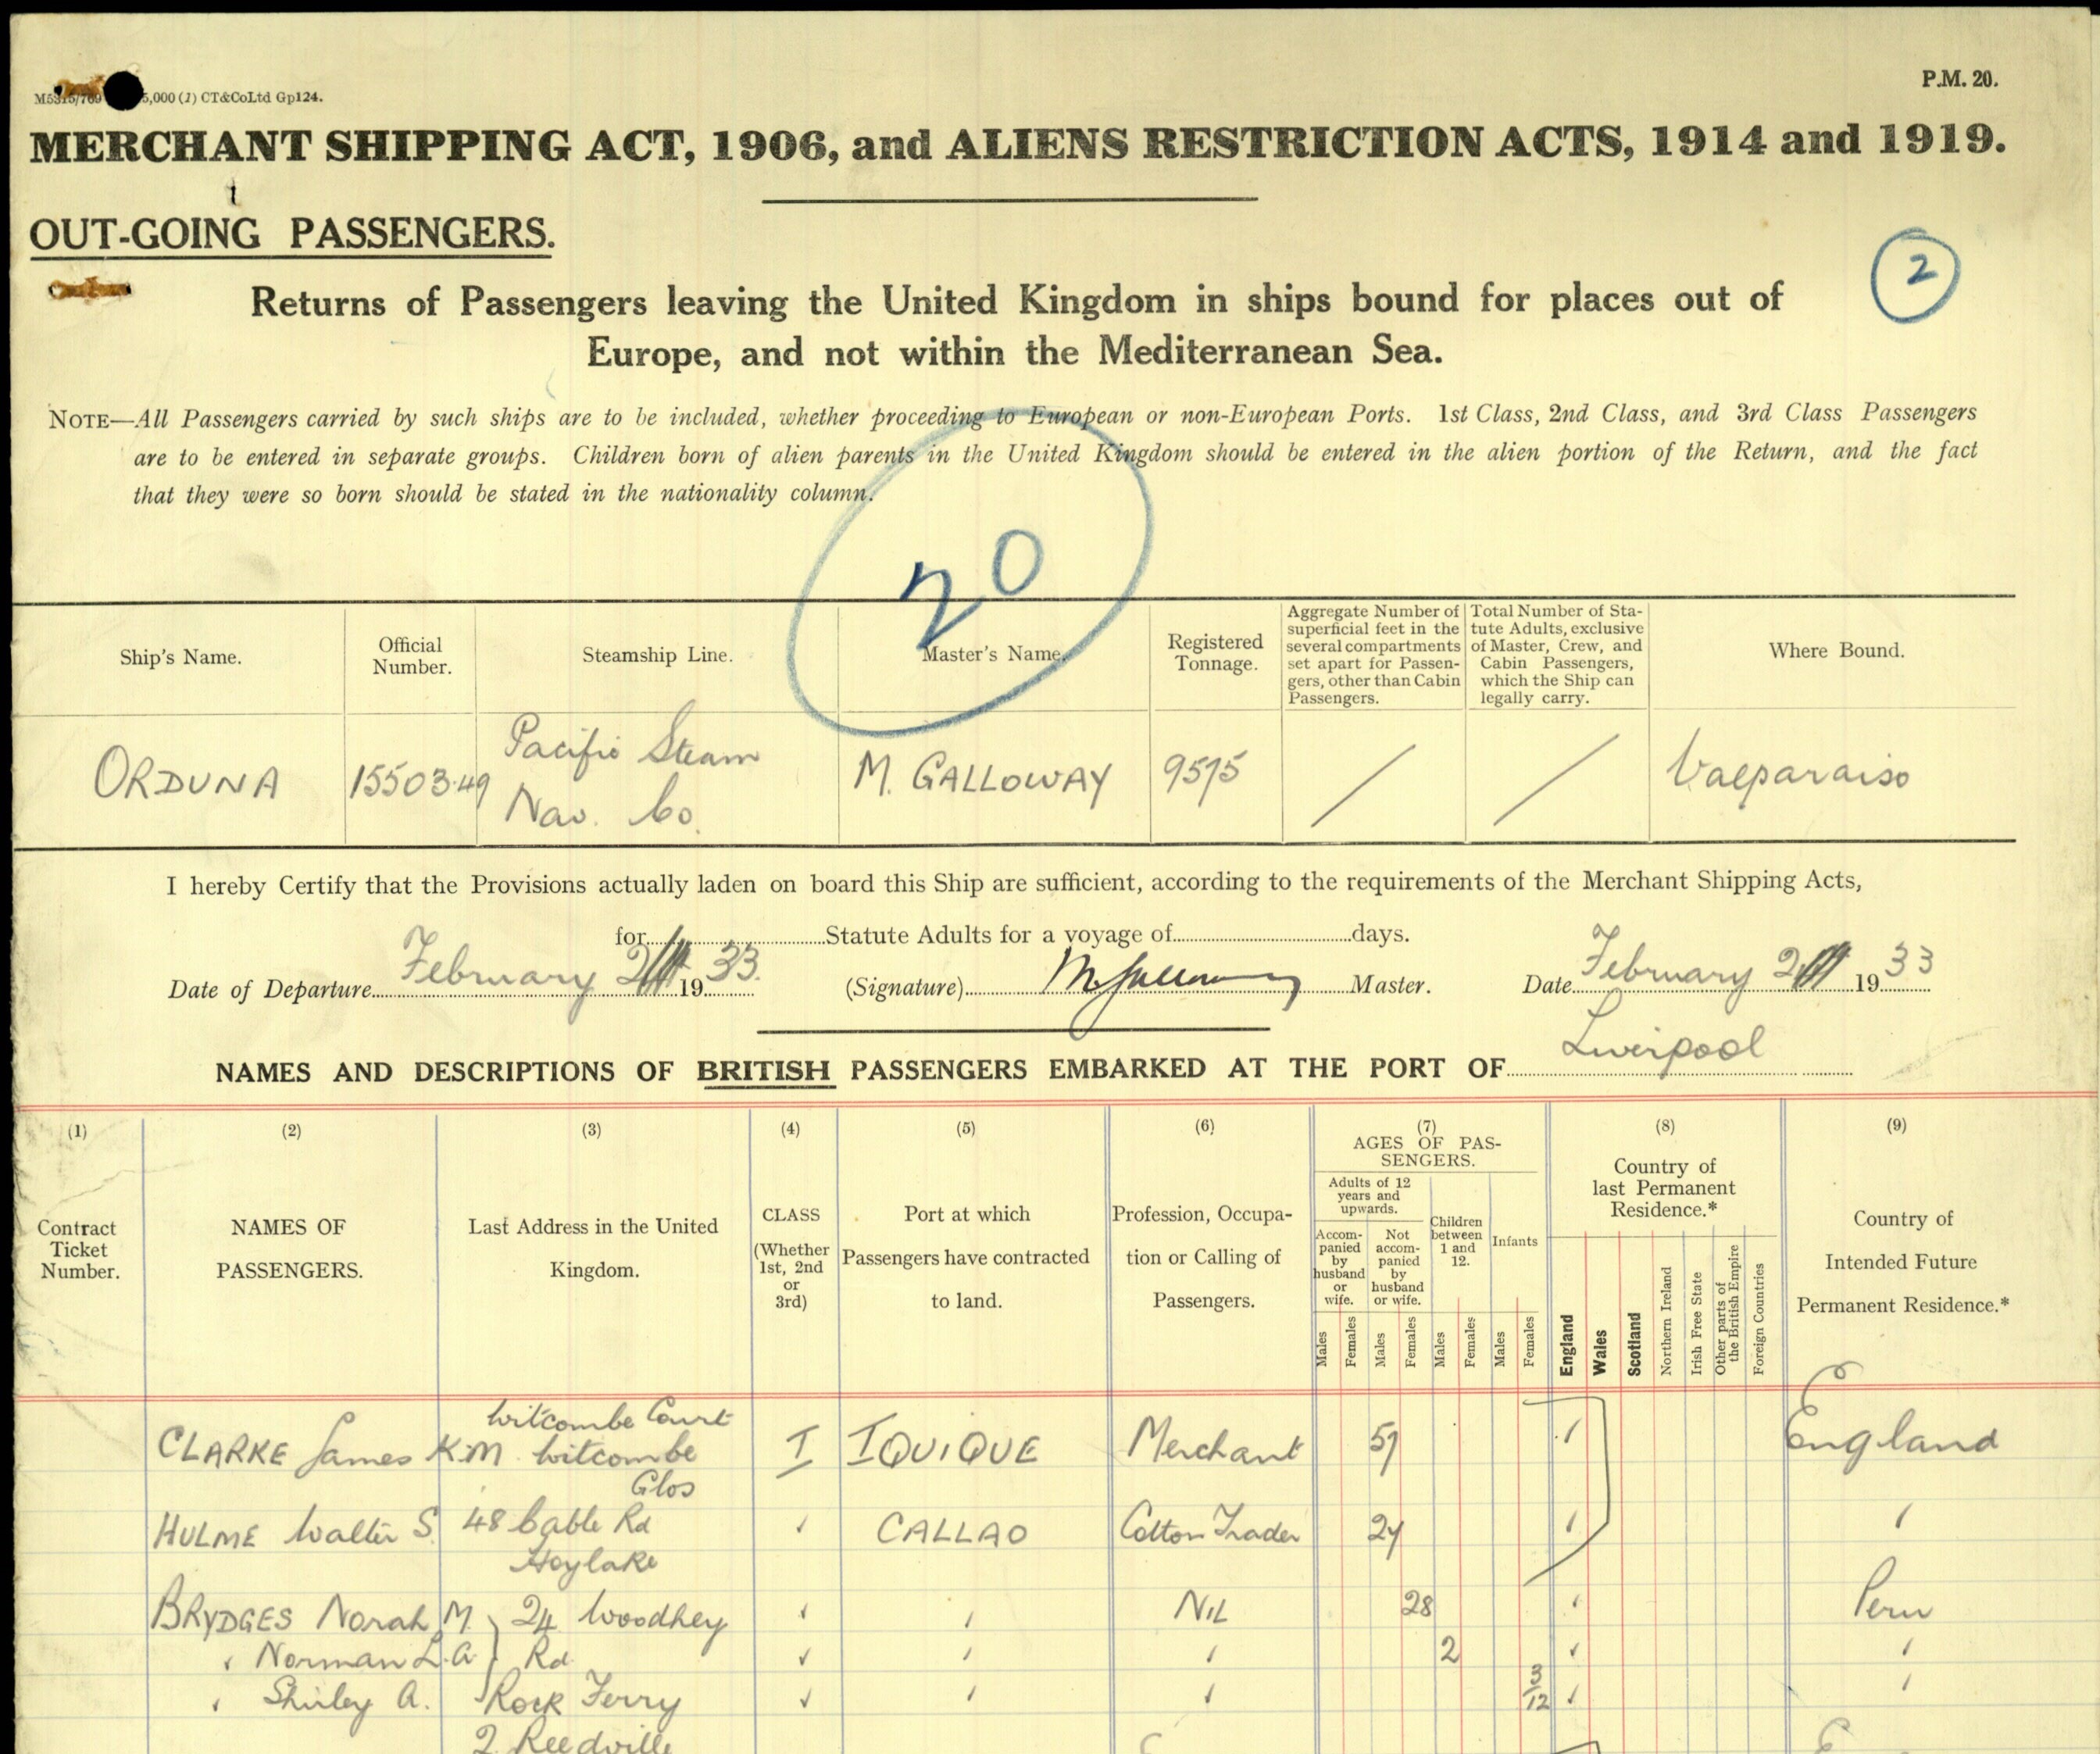 P.M. 20.
5,000 (1) CT&CoLtd Gp124.
MERCHANT SHIPPING ACT, 1906, and ALIENS RESTRICTION ACTS, 1914 and 1919.
OUT-GOING PASSENGERS.
2
Returns of Passengers leaving the United Kingdom in ships bound for places out of
Europe, and not within the Mediterranean Sea.
NOTE—All Passengers carried by such ships are to be included, whether proceeding to European or non-European Ports. 1st Class, 2nd Class, and 3rd Class Passengers
are to be entered in separate groups. Children born of alien parents in the United Kingdom should be entered in the alien portion of the Return, and the fact
that they were so born should be stated in the nationality column.
20
Ship's Name.
Official
Number.
Steamship Line.
Master's Name.
Registered
Tonnage.
Aggregate Number of
superficial feet in the
several compartments
set apart for Passen-
gers, other than Cabin
Passengers.
Total Number of Sta-
tute Adults, exclusive
of Master, Crew, and
Cabin Passengers,
which the Ship can
legally carry.
Where Bound.
ORDUNA
Pacific Steam
Nav. Co.
M. GALLOWAY
Valparaiso
I hereby Certify that the Provisions actually laden on board this Ship are sufficient, according to the requirements of the Merchant Shipping Acts,
for Statute Adults for a voyage of days.
Date of Departure February 1933.
(Signature) M. Galloway Master.
Date February 1933
NAMES AND DESCRIPTIONS OF BRITISH PASSENGERS EMBARKED AT THE PORT OF Liverpool
(1)
Contract
Ticket
Number.
(2)
NAMES OF
PASSENGERS.
(3)
Last Address in the United
Kingdom.
(4)
CLASS
(Whether
1st, 2nd
or
3rd)
(5)
Port at which
Passengers have contracted
to land.
(6)
Profession, Occupa-
tion or Calling of
Passengers.
(7)
AGES OF PAS-
SENGERS.
Adults of 12
years and
upwards.
Accom-
panied
by
husband
or
wife.
Not
accom-
panied
by
husband
or wife.
Children
between
1 and
12.
Infants
Males
Females
Males
Females
Males
Females
Males
Females
(8)
Country of
last Permanent
Residence.*
England
Wales
Scotland
Northern Ireland
Irish Free State
Other parts of
the British Empire
Foreign Countries
(9)
Country of
Intended Future
Permanent Residence.*
Witcombe Court
CLARKE James K.M. Witcombe I IQUIQUE Merchant England
Glos
HULME Walter S. 48 Cable Rd CALLAO Cotton Trader
Hoylake
BRYDGES Norah M. 24 Woodhey NIL 28 Peru
Norman L.A. Rd 2
Shirley A. Rock Ferry 3/12
2 Reedville